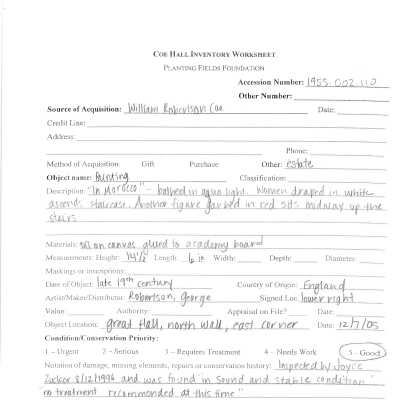 COE HALL INVENTORY WORKSHEET
PLANTING FIELDS FOUNDATION
Accession Number: 1955.002.110
Other Number:
Source of Acquisition: William Robertson Coe Date:
Credit Line:
Address:
Phone:
Method of Acquisition: Gift Purchase Other: estate
Object name: Painting Classification:
Description: "In Morocco" - bathed in aqua light. Women draped in white
ascends staircase. Another figure garbed in red sits midway up the
stairs
Materials: oil on canvas glued to academy board
Measurements: Height: 14 1/2 Length: in Width: Depth: Diameter:
Markings or inscriptions:
Date of Object: late 19th century Country of Origin: England
Artist/Maker/Distributor: Robertson, George Signed Loc: lower right
Value: Authority: Appraisal on File? Date:
Object Location: great Hall, north wall, east corner Date: 12/7/05
Condition/Conservation Priority:
1 – Urgent 2 – Serious 3 – Requires Treatment 4 – Needs Work 5 – Good
Notation of damage, missing elements, repairs or conservation history: Inspected by Joyce
Zucker 8/12/1996 and was found "in sound and stable condition"
"no treatment recommended at this time"